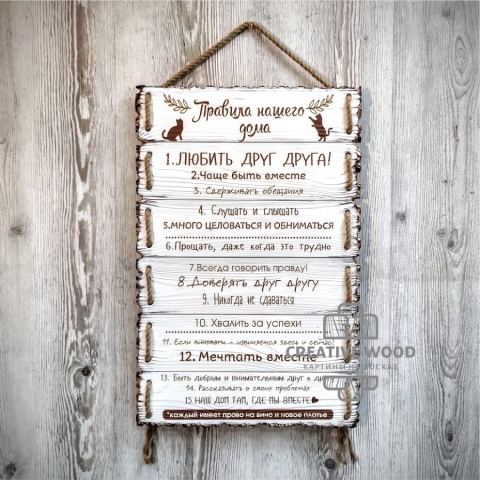 Правила нашего
дома
1.ЛЮБИТЬ ДРУГ ДРУГА!
2.Чаще быть вместе
3. Сдерживать обещания
4. Слушать и слышать
5.МНОГО ЦЕЛОВАТЬСЯ И ОБНИМАТЬСЯ
6.Прощать, даже когда это трудно
7.Всегда говорить правду!
8.Доверять друг другу
9. Никогда не сдаваться
10. Хвалить за успехи
11. Если виноваты - извиняемся здесь и сейчас
12. Мечтать вместе
CREATIVE WOOD
КАРТИНЫ НА ДОСКАХ
13. Быть добрым и внимательным друг к
14. Рассказывать о своих проблемах
15.НАШ ДОМ ТАМ, ГДЕ МЫ ВМЕСТЕ
*каждый имеет право на вино и новое платье